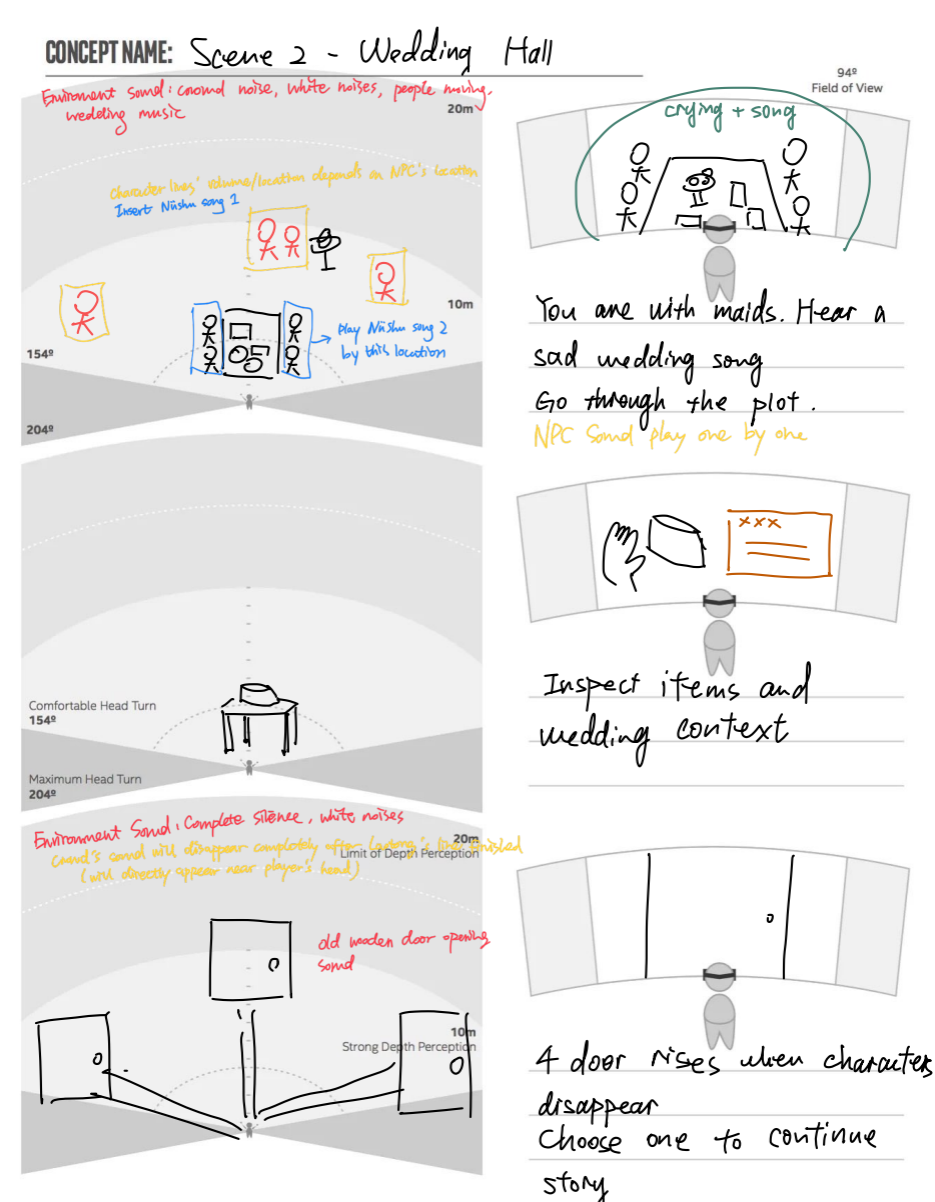 CONCEPT NAME: Scene 2 - Wedding Hall
Environment Sound: crowd noise, white noises, people moving,
wedding music
20m
94º
Field of View
character lines' volume/location depends on NPC's location
Insert Nüshu song 1
10m
play Nüshu song 2
by this location
154º
204º
crying + song
You are with maids. Hear a
sad wedding song
Go through the plot.
NPC Sound play one by one
Comfortable Head Turn
154º
Maximum Head Turn
204º
xxx
Inspect items and
wedding context
Environment Sound: Complete silence, white noises
20m
Limit of Depth Perception
Crowd's sound will disappear completely after line finished
(will directly appear near player's head)
old wooden door opening
sound
10m
Strong Depth Perception
4 door rises when characters
disappear
Choose one to continue
story